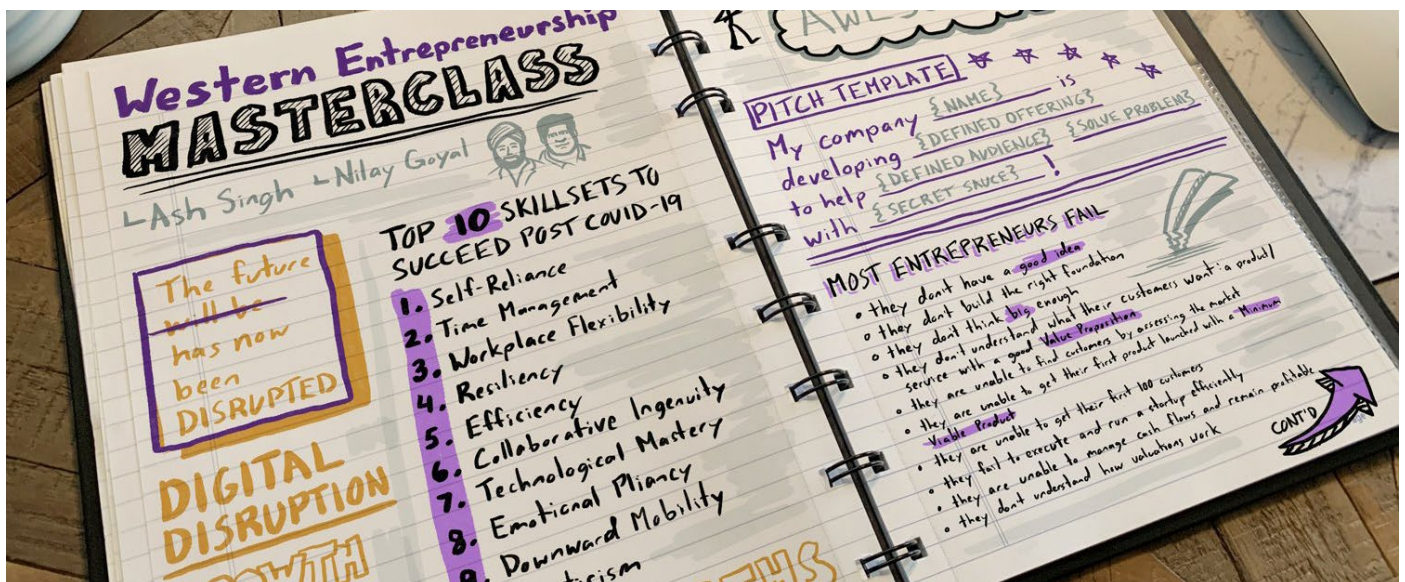 Western Entrepreneurship
MASTERCLASS
Ash Singh
Nilay Goyal
The future
will be
has now
been
DISRUPTED
DIGITAL
DISRUPTION
TOP 10 SKILLSETS TO
SUCCEED POST COVID-19
1. Self-Reliance
2. Time Management
3. Workplace Flexibility
4. Resiliency
5. Efficiency
6. Collaborative Ingenuity
7. Technological Mastery
8. Emotional Pliancy
9. Downward Mobility
PITCH TEMPLATE
My company {NAME} is
developing {DEFINED OFFERING}
to help {DEFINED AUDIENCE} {SOLVE PROBLEM}
with {SECRET SAUCE} !
MOST ENTREPRENEURS FAIL
• they don't have a good idea
• they don't build the right foundation
• they don't think big enough
• they don't understand what their customers want: a product/
service with a good Value Proposition
• they are unable to find customers by assessing the market
• they are unable to get their first product launched with a Minimum
Viable Product
• they are unable to get their first 100 customers
• they fail to execute and run a startup efficiently
• they are unable to manage cash flows and remain profitable
• they don't understand how valuations work
CONT'D